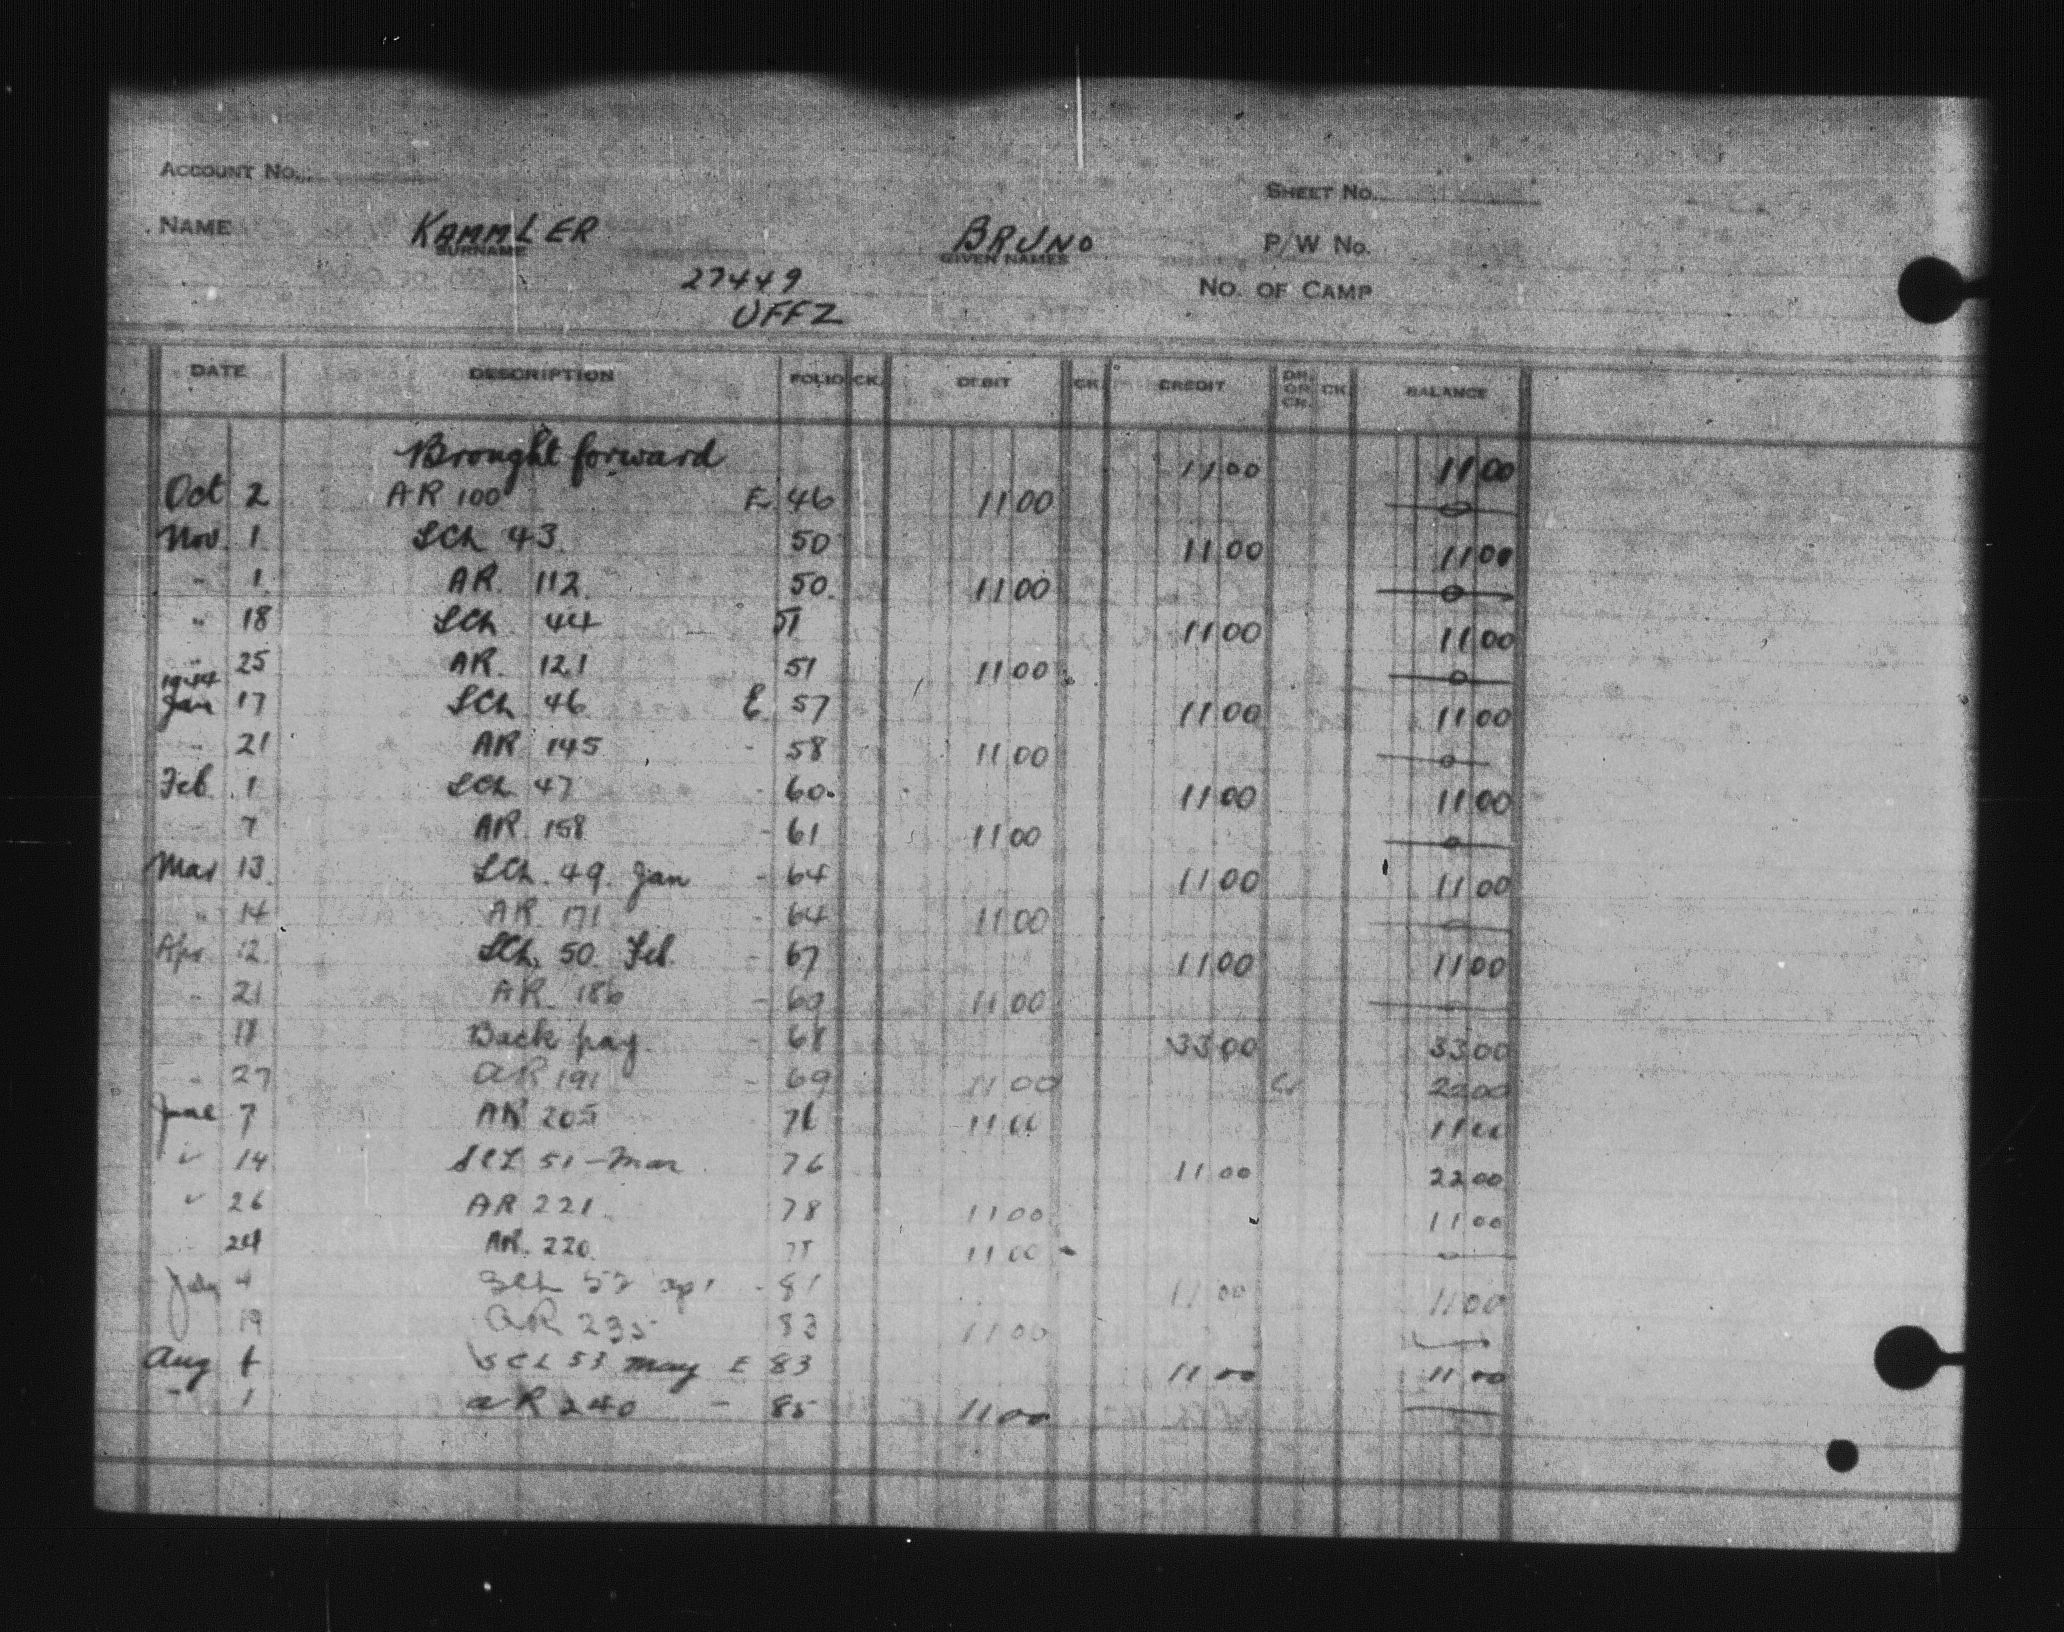 ACCOUNT No.
SHEET No.
NAME KAMMLER BRUNO P/W No.
SURNAME GIVEN NAMES
27449 No. OF CAMP
UFFZ
DATE DESCRIPTION FOLIO CK. DEBIT CK. CREDIT DR. OR CR. CK. BALANCE
Brought forward 11 00 11 00
Oct 2 AR 100 E 46 11 00 0
Nov. 1 SCh 43 50 11 00 11 00
" 1. AR. 112. 50. 11 00 0
" 18 SCh 44 51 11 00 11 00
" 25 AR. 121 51 11 00 0
1944
Jan 17 SCh 46 E. 57 11 00 11 00
" 21 AR 145 - 58 11 00 0
Feb. 1 SCh 47 - 60. 11 00 11 00
7 AR. 158 - 61 11 00 0
Mar 13. SCh. 49. Jan - 64 11 00 11 00
" 14 AR 171 - 64 11 00 0
Apr 12. SCh. 50. Feb. - 67 11 00 11 00
" 21 AR. 186 - 69 11 00
18 Back pay - 68 33 00 33 00
" 27 AR 191 - 69 11 00 Cr 22 00
June 7 AR 205 76 11 00 11 00
" 14 SCh 51 - Mar 76 11 00 22 00
" 26 AR 221. 78 11 00 11 00
24 AR. 220. 78 11 00 0
July 4 SCh 52 Apr - 81 11 00 11 00
19 AR 235 83 11 00
Aug 1 SCh 53 May E 83 11 00 11 00
" 1 AR 240 - 85 11 00